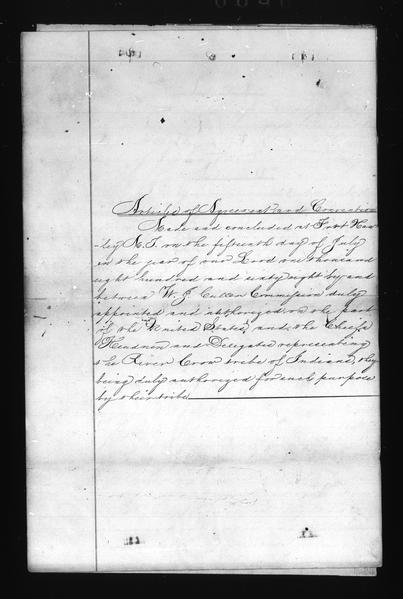 Articles of Agreement and Convention
Made and concluded at Fort Haw-
-ley M.T. on the fifteenth day of July
in the year of our Lord one thousand
eight hundred and sixty eight by and
between W. J. Cullen Commission duly
appointed and authorized on the part
of the United States, and the Chiefs
Headmen and Delegates representing
the River Crow tribe of Indians, they
being duly authorized for such purpose
by their tribe